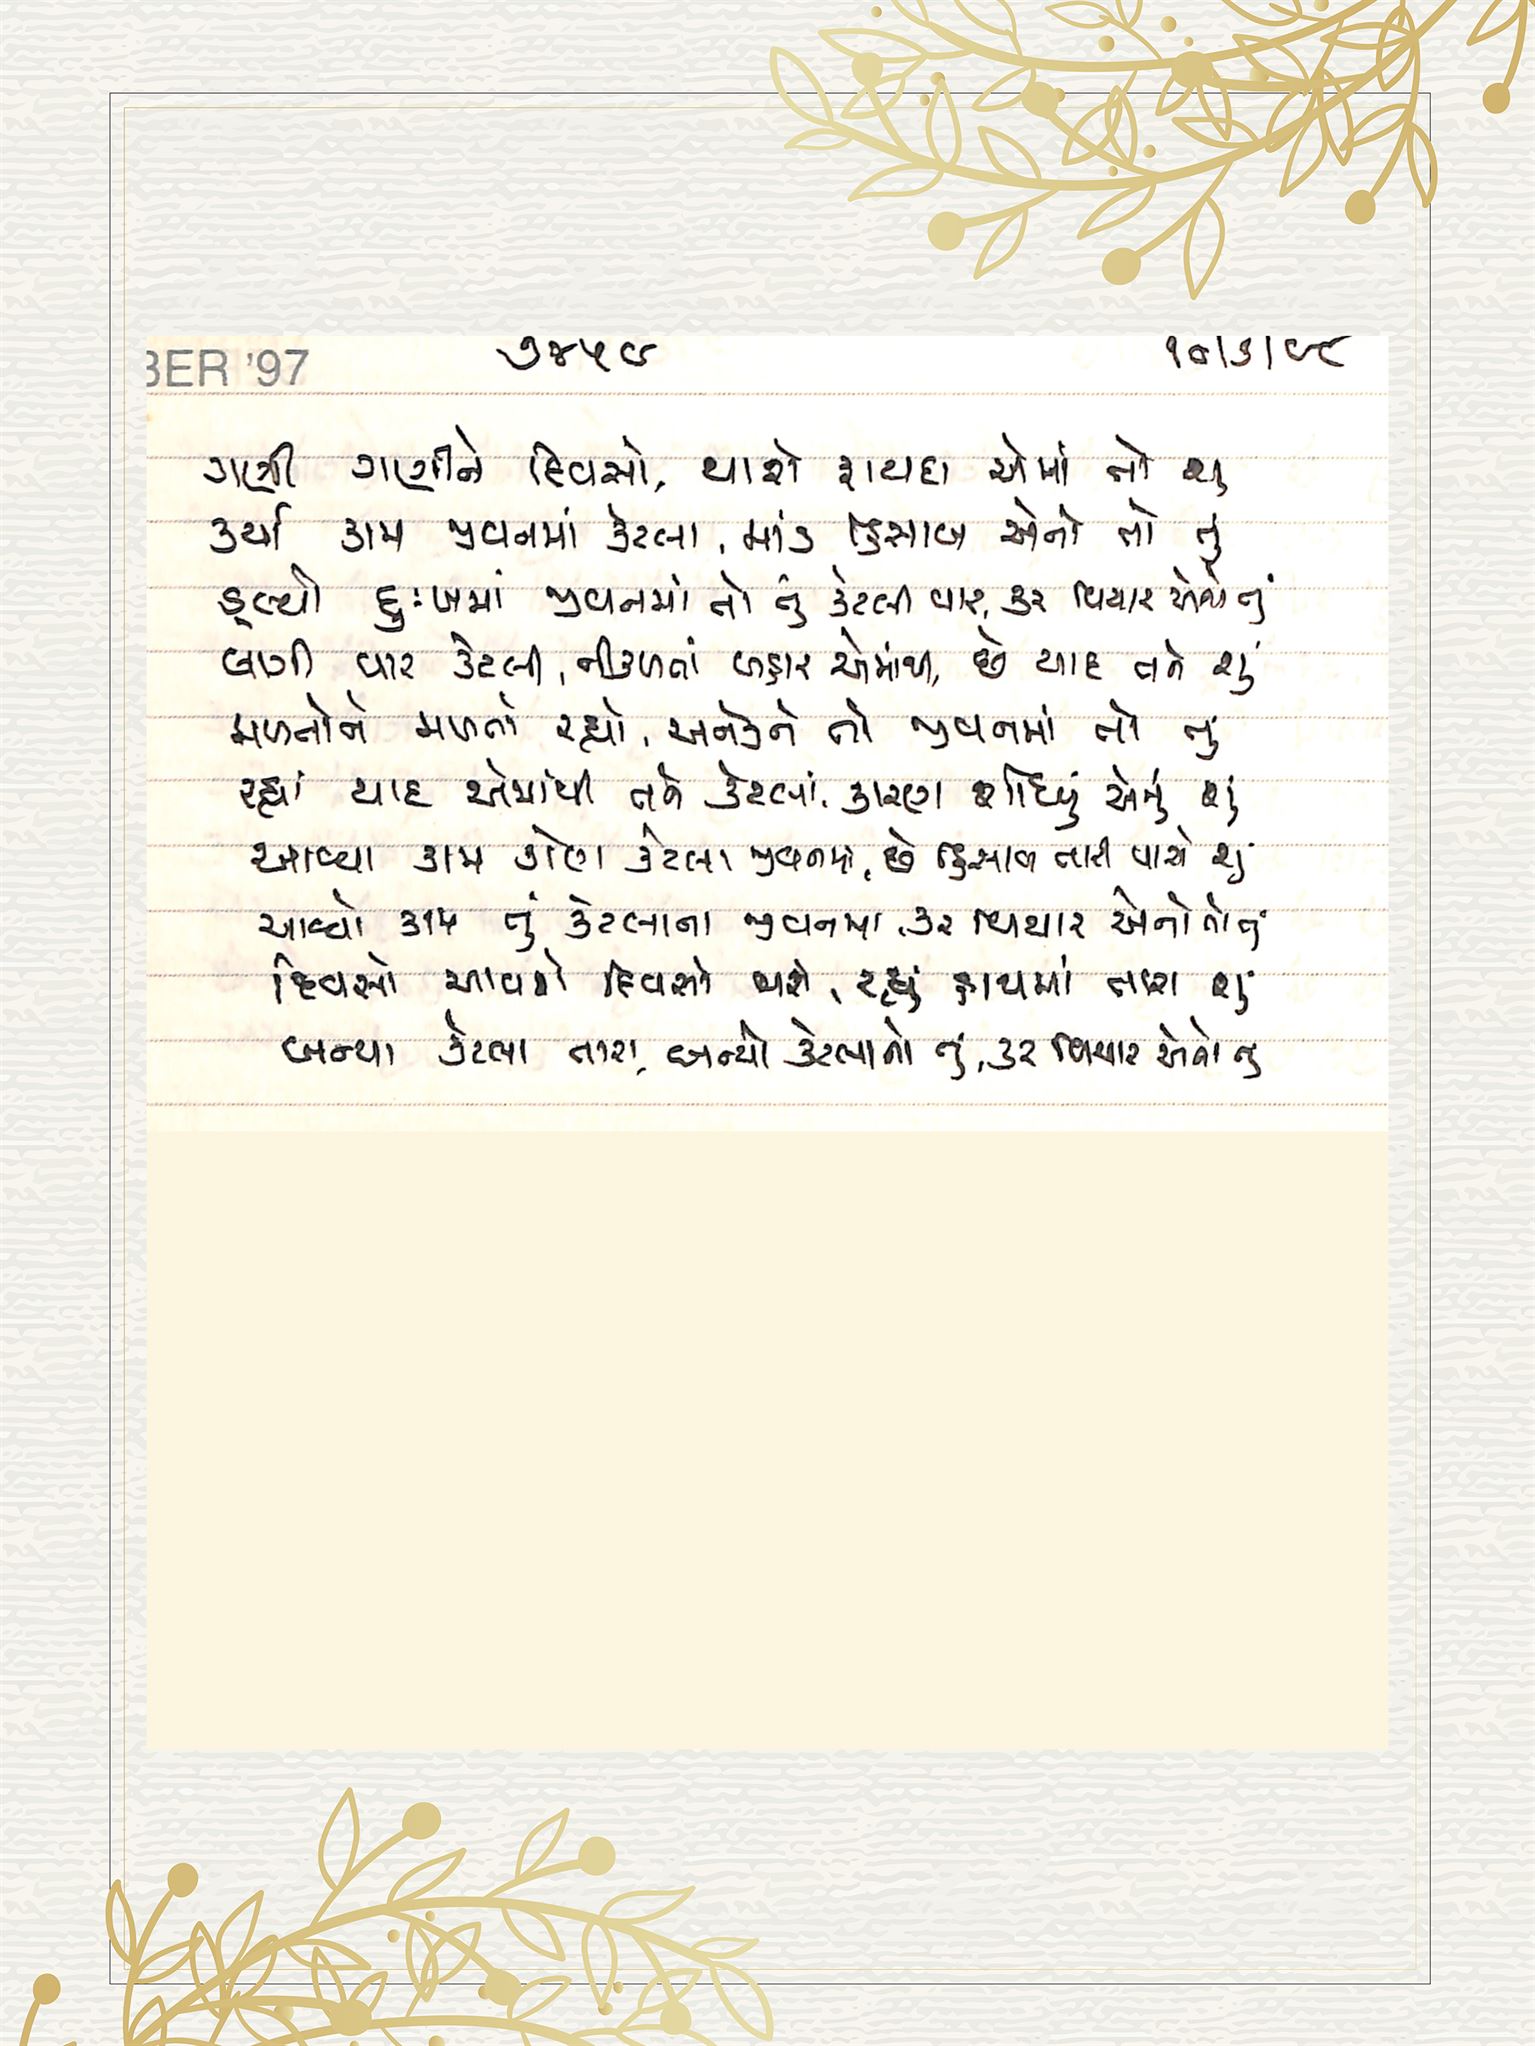 BER '97 ૭૪૫૯ ૧૦/૩/૯૮
ગણી ગણીને દિવસો, થાશે ફાયદા એમાં તો શું
કર્યા કામ જીવનમાં કેટલા, માંડ હિસાબ એનો તો તું
ડૂબ્યો દુઃખમાં જીવનમાં તો તું કેટલી વાર, કર વિચાર એનો તું
બળી વાર કેટલી, નીકળતાં બહાર એમાંથી, છે યાદ તને શું
મળતોને મળતો રહ્યો, અનેકને તો જીવનમાં તો તું
રહ્યાં યાદ એમાંથી તને કેટલાં, કારણ શોધ્યું એનું શું
આવ્યા કામ કોણ કેટલા જીવનમાં, છે હિસાબ તારી પાસે શું
આવ્યો કામ તું કેટલાના જીવનમાં, કર વિચાર એનો તો તું
દિવસો આવશે દિવસો જાશે, રહ્યું હાથમાં તારા શું
બન્યા કેટલા તારા, બન્યો કેટલાનો તું, કર વિચાર એનો તું